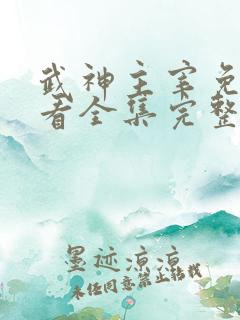 武神主宰免
看全集完整
墨迹凉凉
未经同意禁止转载